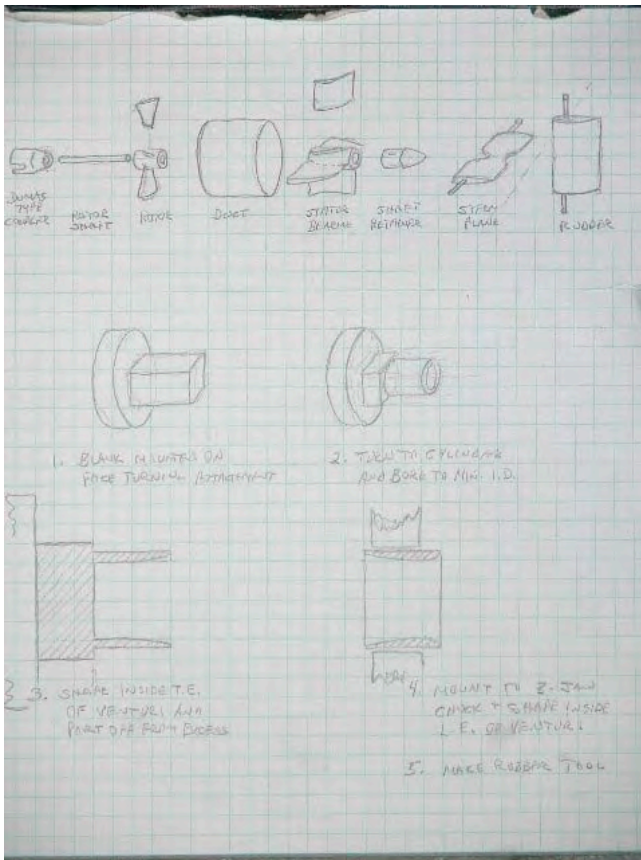 DUMAS
TYPE
COUPLER
ROTOR
SHAFT
ROTOR
DUCT
STATOR
BEARING
SHAFT
RETAINER
STERN
PLANE
RUDDER
1. BLANK MOUNTED ON
FACE TURNING ATTACHMENT
2. TURN TO CYLINDER
AND BORE TO MIN. I.D.
3. SHAPE INSIDE T.E.
OF VENTURI AND
PART OFF FROM EXCESS
4. MOUNT TO 3-JAW
CHUCK & SHAPE INSIDE
L.E. OF VENTURI
5. MAKE RUBBER TOOL